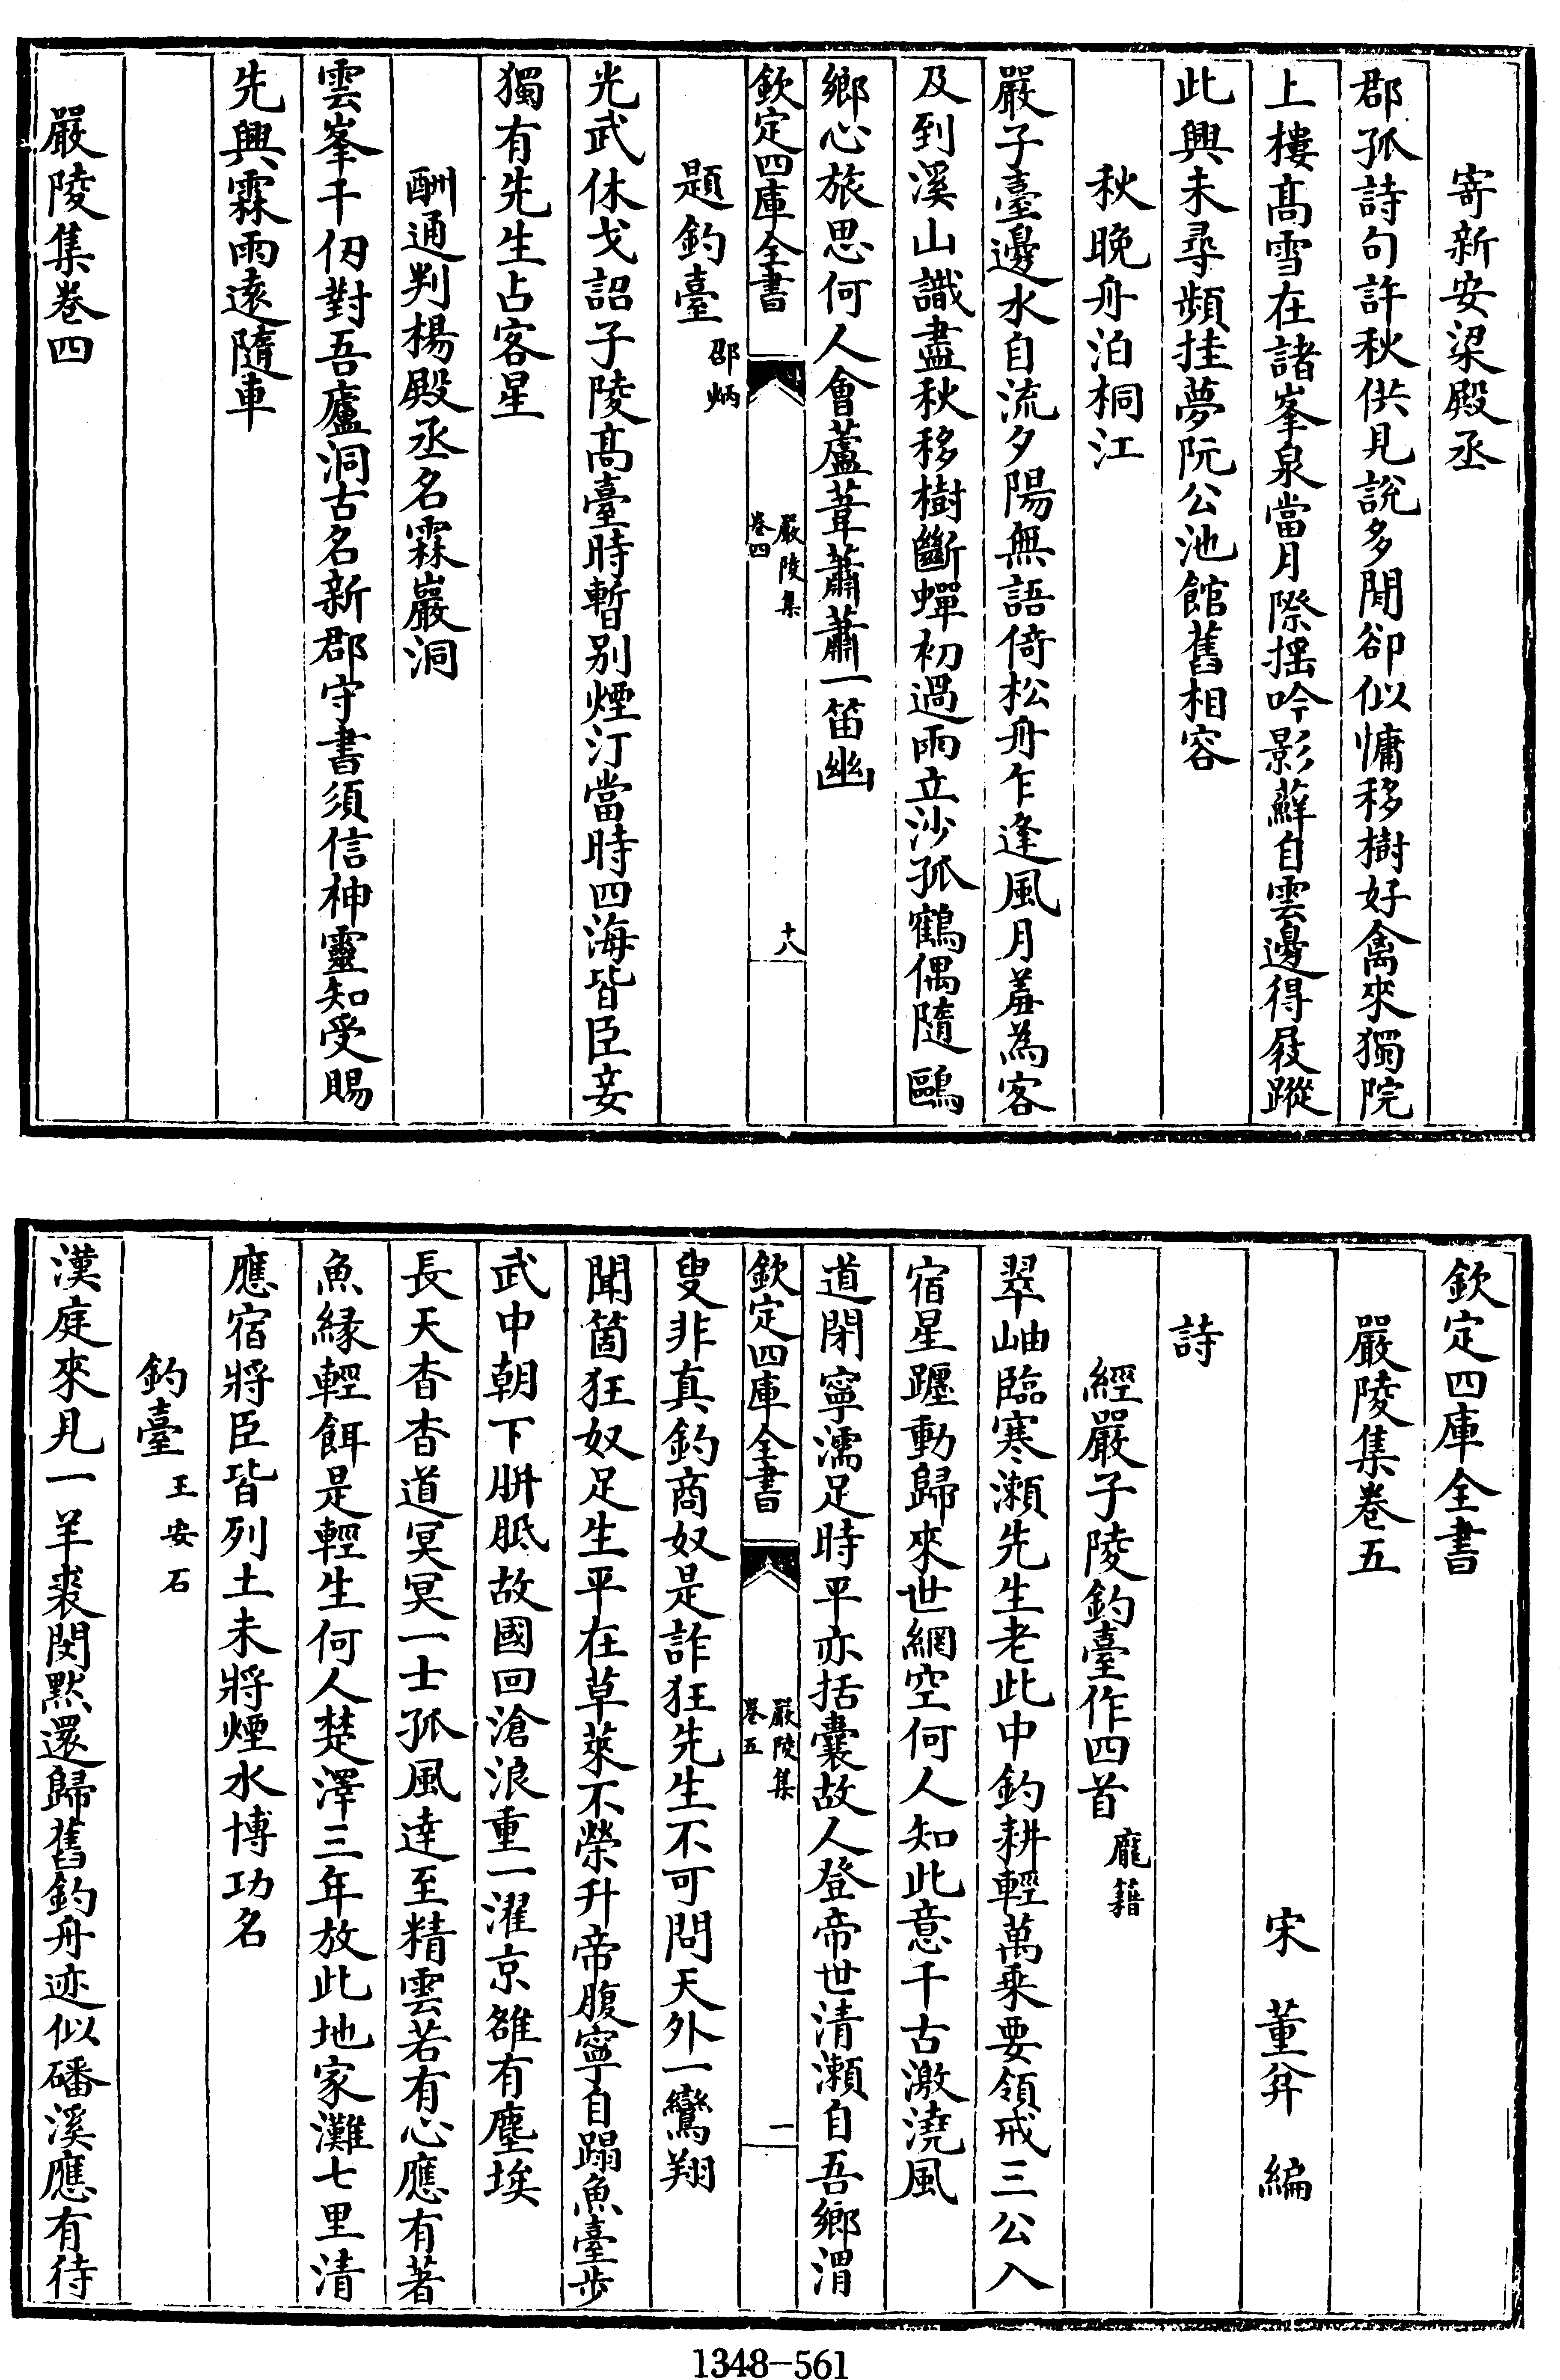 寄新安梁殿丞
郡孤詩句許秋供見說多閒卻似慵移樹好禽來獨院
上樓髙雪在諸峯泉當月際揺吟影蘚自雲邊得屐蹤
此興未尋頻挂夢阮公池館舊相容
秋晚舟泊桐江
嚴子臺邊水自流夕陽無語倚松舟乍逢風月羞為客
及到溪山識盡秋移樹斷蟬初過雨立沙孤鶴偶隨鷗
鄉心旅思何人會蘆葦蕭蕭一笛幽
欽定四庫全書
嚴陵集
卷四
十八
題釣臺 邵炳
光武休戈詔子陵髙臺時暫别煙汀當時四海皆臣妾
獨有先生占客星
酬通判楊殿丞名霖巖洞
雲峯千仭對吾廬洞古名新郡守書須信神靈知受賜
先興霖雨遠隨車
嚴陵集卷四
欽定四庫全書
嚴陵集卷五
宋 董弅 編
詩
經嚴子陵釣臺作四首 龐籍
翠岫臨寒瀬先生老此中釣耕輕萬乗要領戒三公入
宿星躔動歸來世網空何人知此意千古激澆風
道閉寧濡足時平亦括囊故人登帝世清瀬自吾鄉渭
欽定四庫全書
嚴陵集
卷五
一
叟非真釣商奴是詐狂先生不可問天外一鸞翔
聞箇狂奴足生平在草萊不榮升帝腹寧自蹋魚臺步
武中朝下胼胝故國回滄浪重一濯京雒有塵埃
長天杳杳道冥冥一士孤風達至精雲若有心應有著
魚縁輕餌是輕生何人楚澤三年放此地家灘七里清
應宿將臣皆列土未將煙水博功名
釣臺 王安石
漢庭來見一羊裘閔黙還歸舊釣舟迹似磻溪應有待
1348-561